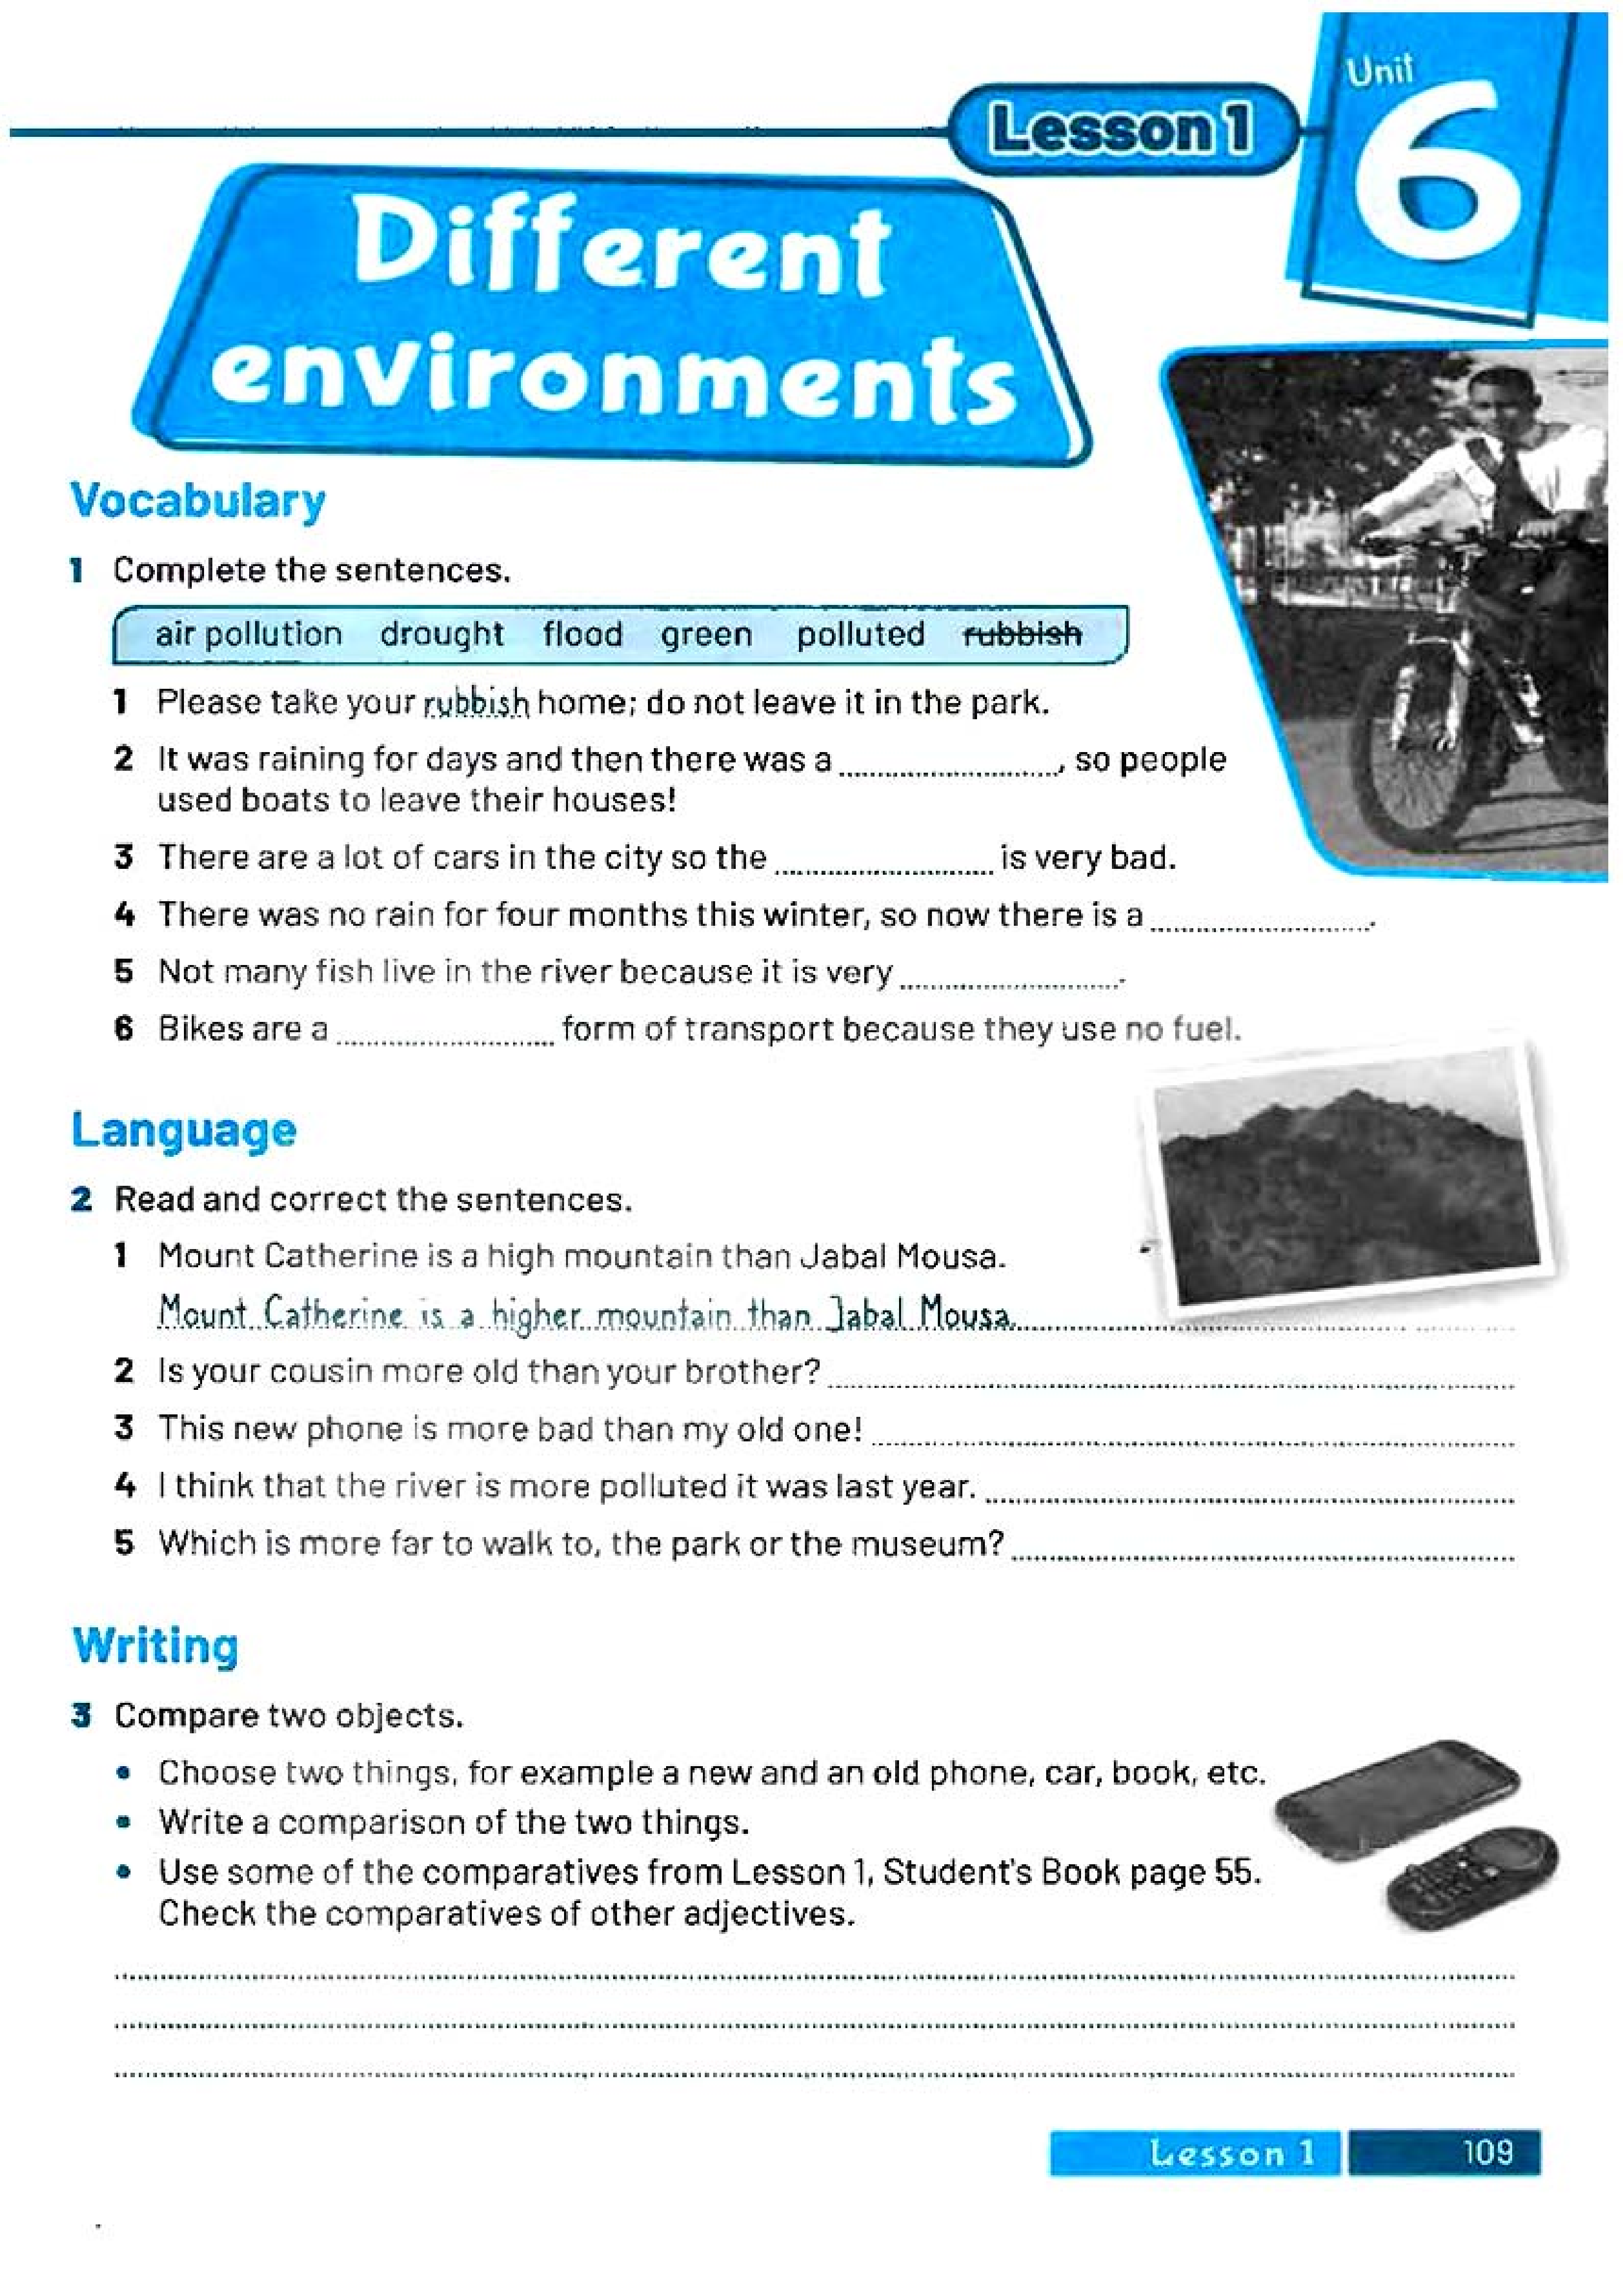 Unit
6
Lesson 1
Different
environments
Vocabulary
1 Complete the sentences.
air pollution drought flood green polluted rubbish
1 Please take your rubbish home; do not leave it in the park.
2 It was raining for days and then there was a ...................., so people
used boats to leave their houses!
3 There are a lot of cars in the city so the .................... is very bad.
4 There was no rain for four months this winter, so now there is a .....................
5 Not many fish live in the river because it is very .....................
6 Bikes are a .................... form of transport because they use no fuel.
Language
2 Read and correct the sentences.
1 Mount Catherine is a high mountain than Jabal Mousa.
Mount Catherine is a higher mountain than Jabal Mousa.
2 Is your cousin more old than your brother? ....................
3 This new phone is more bad than my old one! ....................
4 I think that the river is more polluted it was last year. ....................
5 Which is more far to walk to, the park or the museum? ....................
Writing
3 Compare two objects.
• Choose two things, for example a new and an old phone, car, book, etc.
• Write a comparison of the two things.
• Use some of the comparatives from Lesson 1, Student's Book page 55.
Check the comparatives of other adjectives.
Lesson 1 109